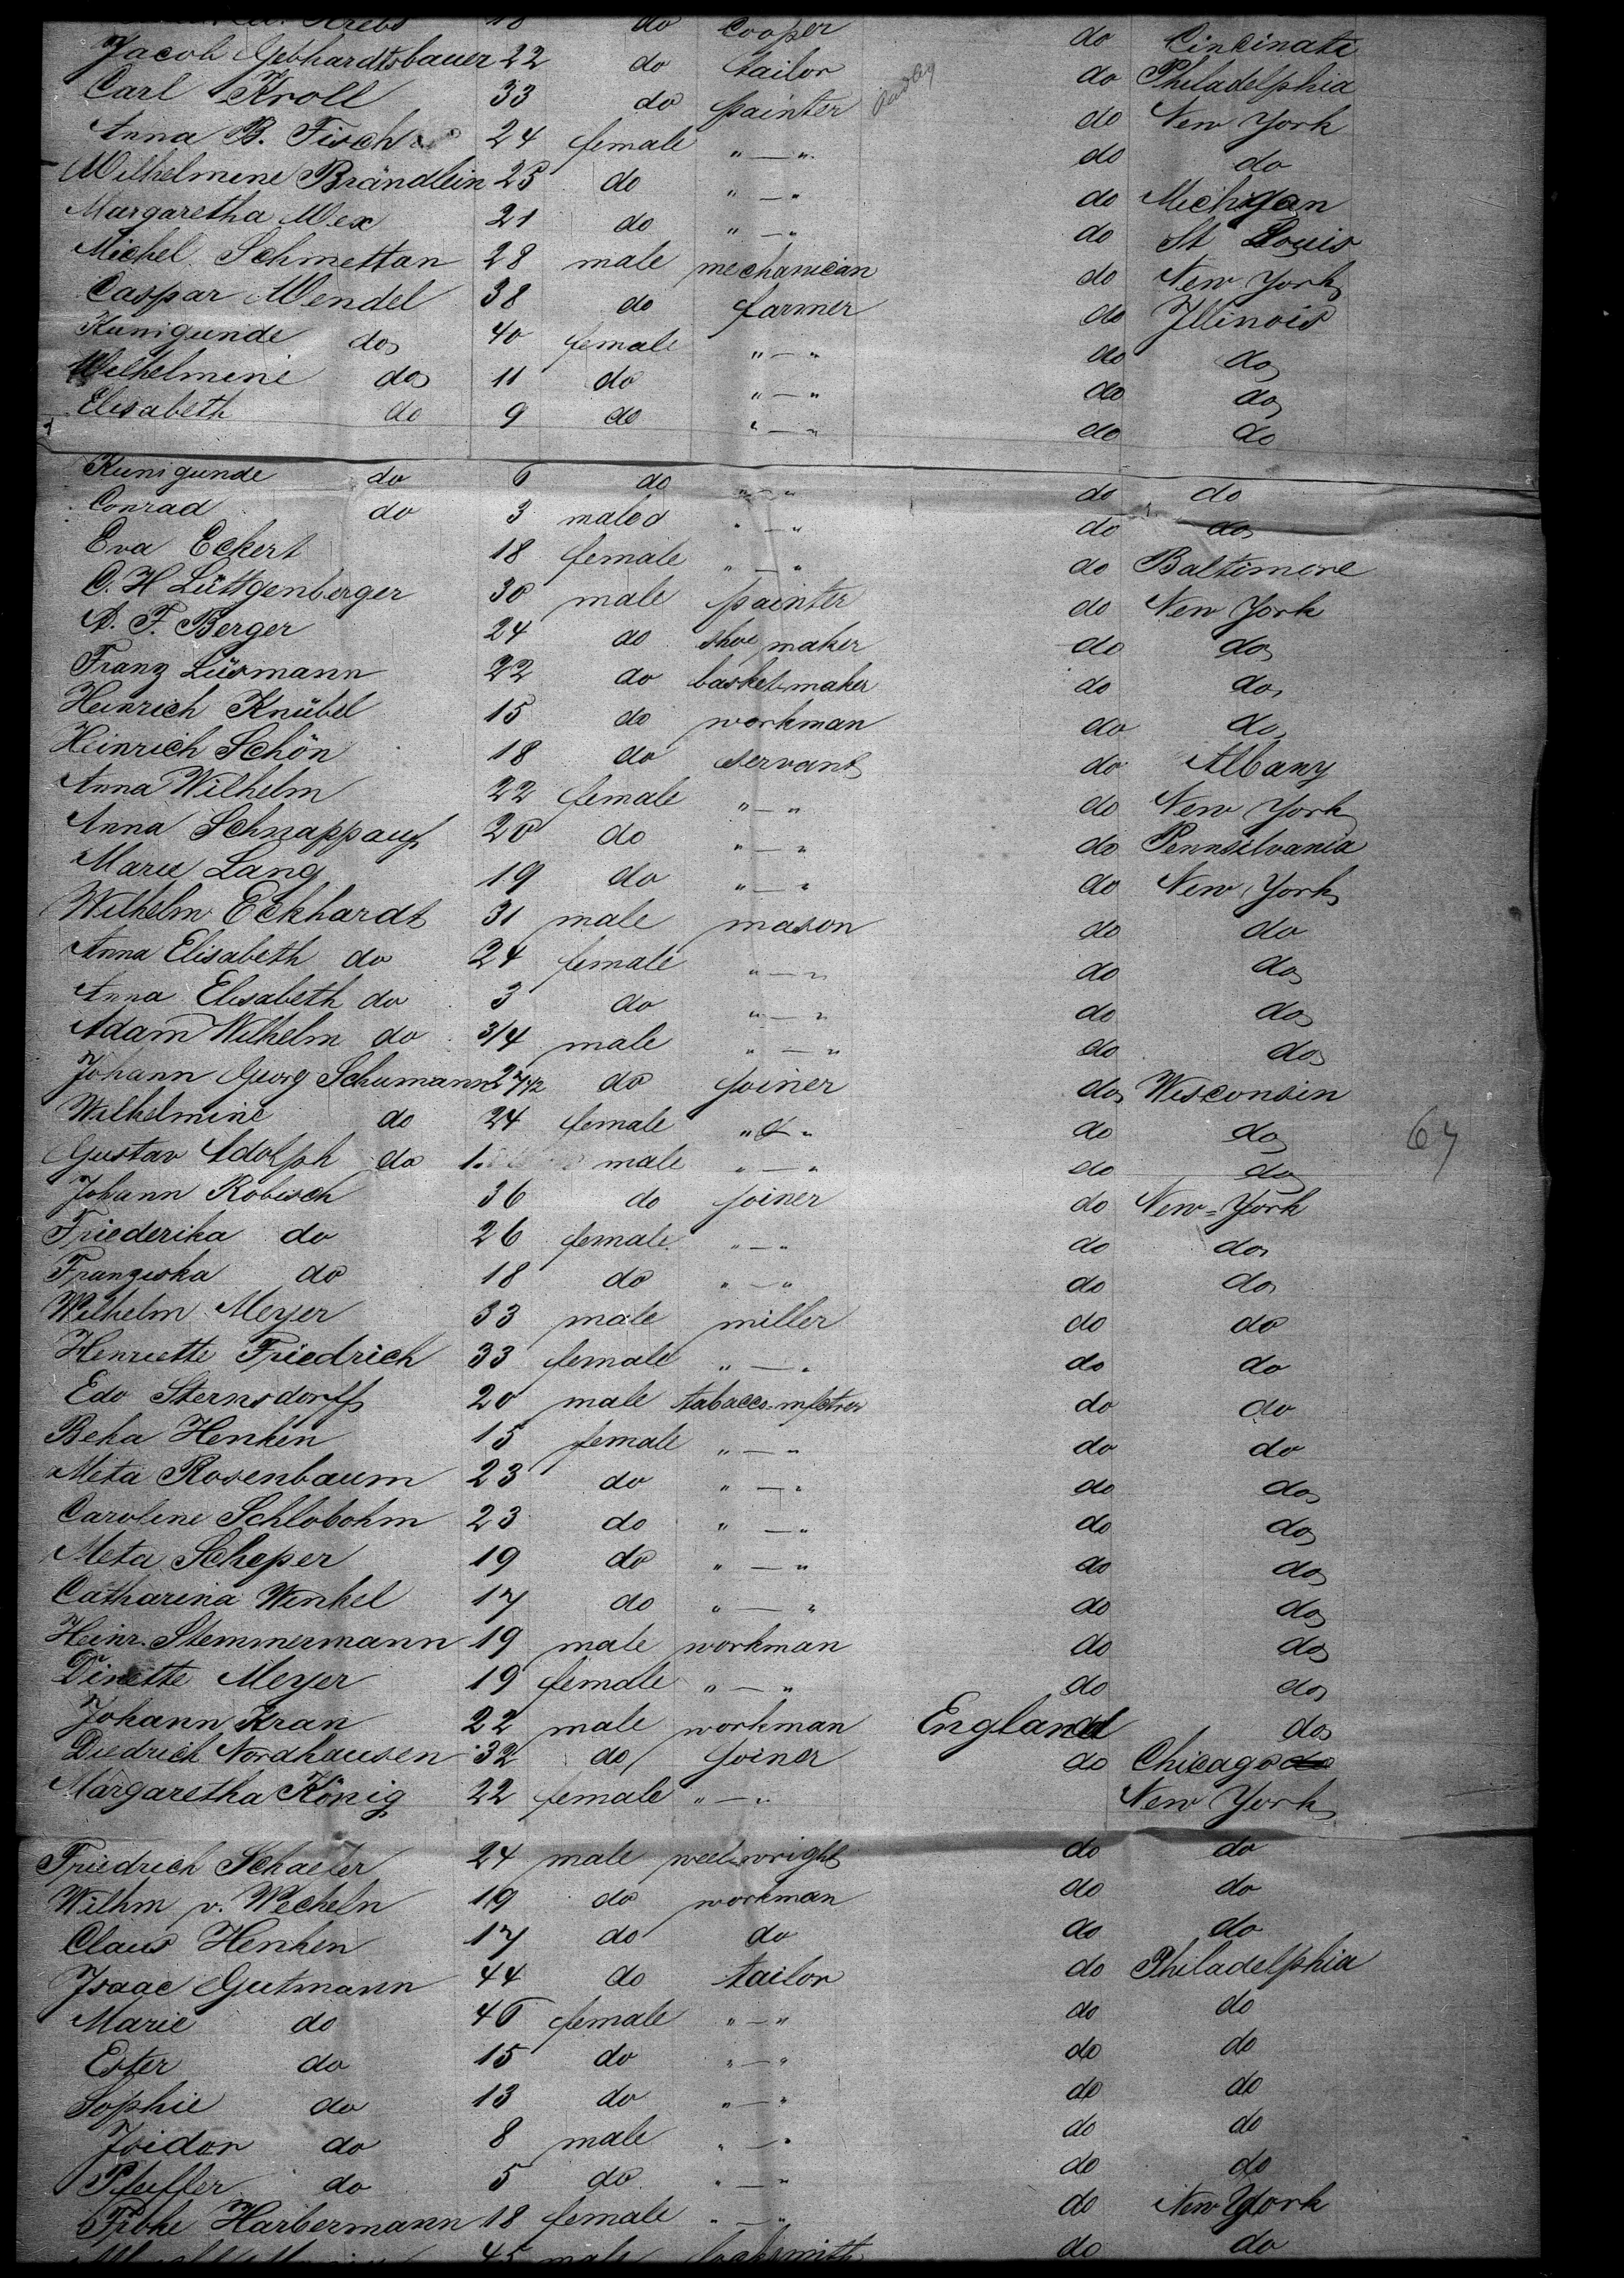 Krebs 18 do Cooper do Cincinati
Jacob Gebhardtsbauer 22 do tailor do Philadelphia
Carl Kroll 33 do painter do New York
Anna B. Fisch 24 female " — " do do
Wilhelmine Brändlein 25 do " — " do Michigan
Margaretha Wex 21 do " — " do St Louis
Michel Schmettan 28 male mechanician do New York
Caspar Wendel 38 do farmer do Illinois
Kunigunde do 40 female " — " do do
Wilhelmine do 11 do " — " do do
Elisabeth do 9 do " — " do do
Kunigunde do 6 do " — " do do
Conrad do 3 male " — " do do
Eva Eckert 18 female " — " do Baltimore
C. H Lüttgenberger 30 male painter do New York
A. F. Berger 24 do shoe maker do do
Franz Lüsmann 22 do basket-maker do do
Heinrich Knübel 15 do workman do do
Heinrich Schön 18 do servant do Albany
Anna Wilhelm 22 female " — " do New York
Anna Schnappauf 20 do " — " do Pennsilvania
Marie Lang 19 do " — " do New York
Wilhelm Eckhardt 31 male mason do do
Anna Elisabeth do 24 female " — " do do
Anna Elisabeth do 3 do " — " do do
Adam Wilhelm do 3/4 male " — " do do
Johann Georg Schumann 27 1/2 do joiner do Wisconsin
Wilhelmine do 24 female " — " do do 67
Gustav Adolph do 1. male " — " do do
Johann Robisch 36 do joiner do New-York
Friederika do 26 female " — " do do
Franziska do 18 do " — " do do
Wilhelm Meyer 33 male miller do do
Henriette Friedrich 33 female " — " do do
Edo Sternsdorff 20 male tabacco-mfctrer do do
Beka Henken 15 female " — " do do
Meta Rosenbaum 23 do " — " do do
Caroline Schlobohm 23 do " — " do do
Meta Scheper 19 do " — " do do
Catharina Winkel 17 do " — " do do
Heinr. Stemmermann 19 male workman do do
Dinette Meyer 19 female " — " do do
Johann Kran 22 male workman England do
Diedrich Nordhausen 32 do joiner do Chicago do
Margaretha König 22 female " — " New York
Friedrich Schaefer 24 male weelwright do do
Wilhm v. Wecheln 19 do workman do do
Claus Henken 17 do do do do
Isaac Gutmann 44 do tailor do Philadelphia
Marie do 46 female " — " do do
Ester do 15 do " — " do do
Sophie do 13 do " — " do do
Isidor do 8 male " — " do do
Pfeiffer do 5 do " — " do do
Fibke Harbermann 18 female " — " do New York
45 male locksmith do do